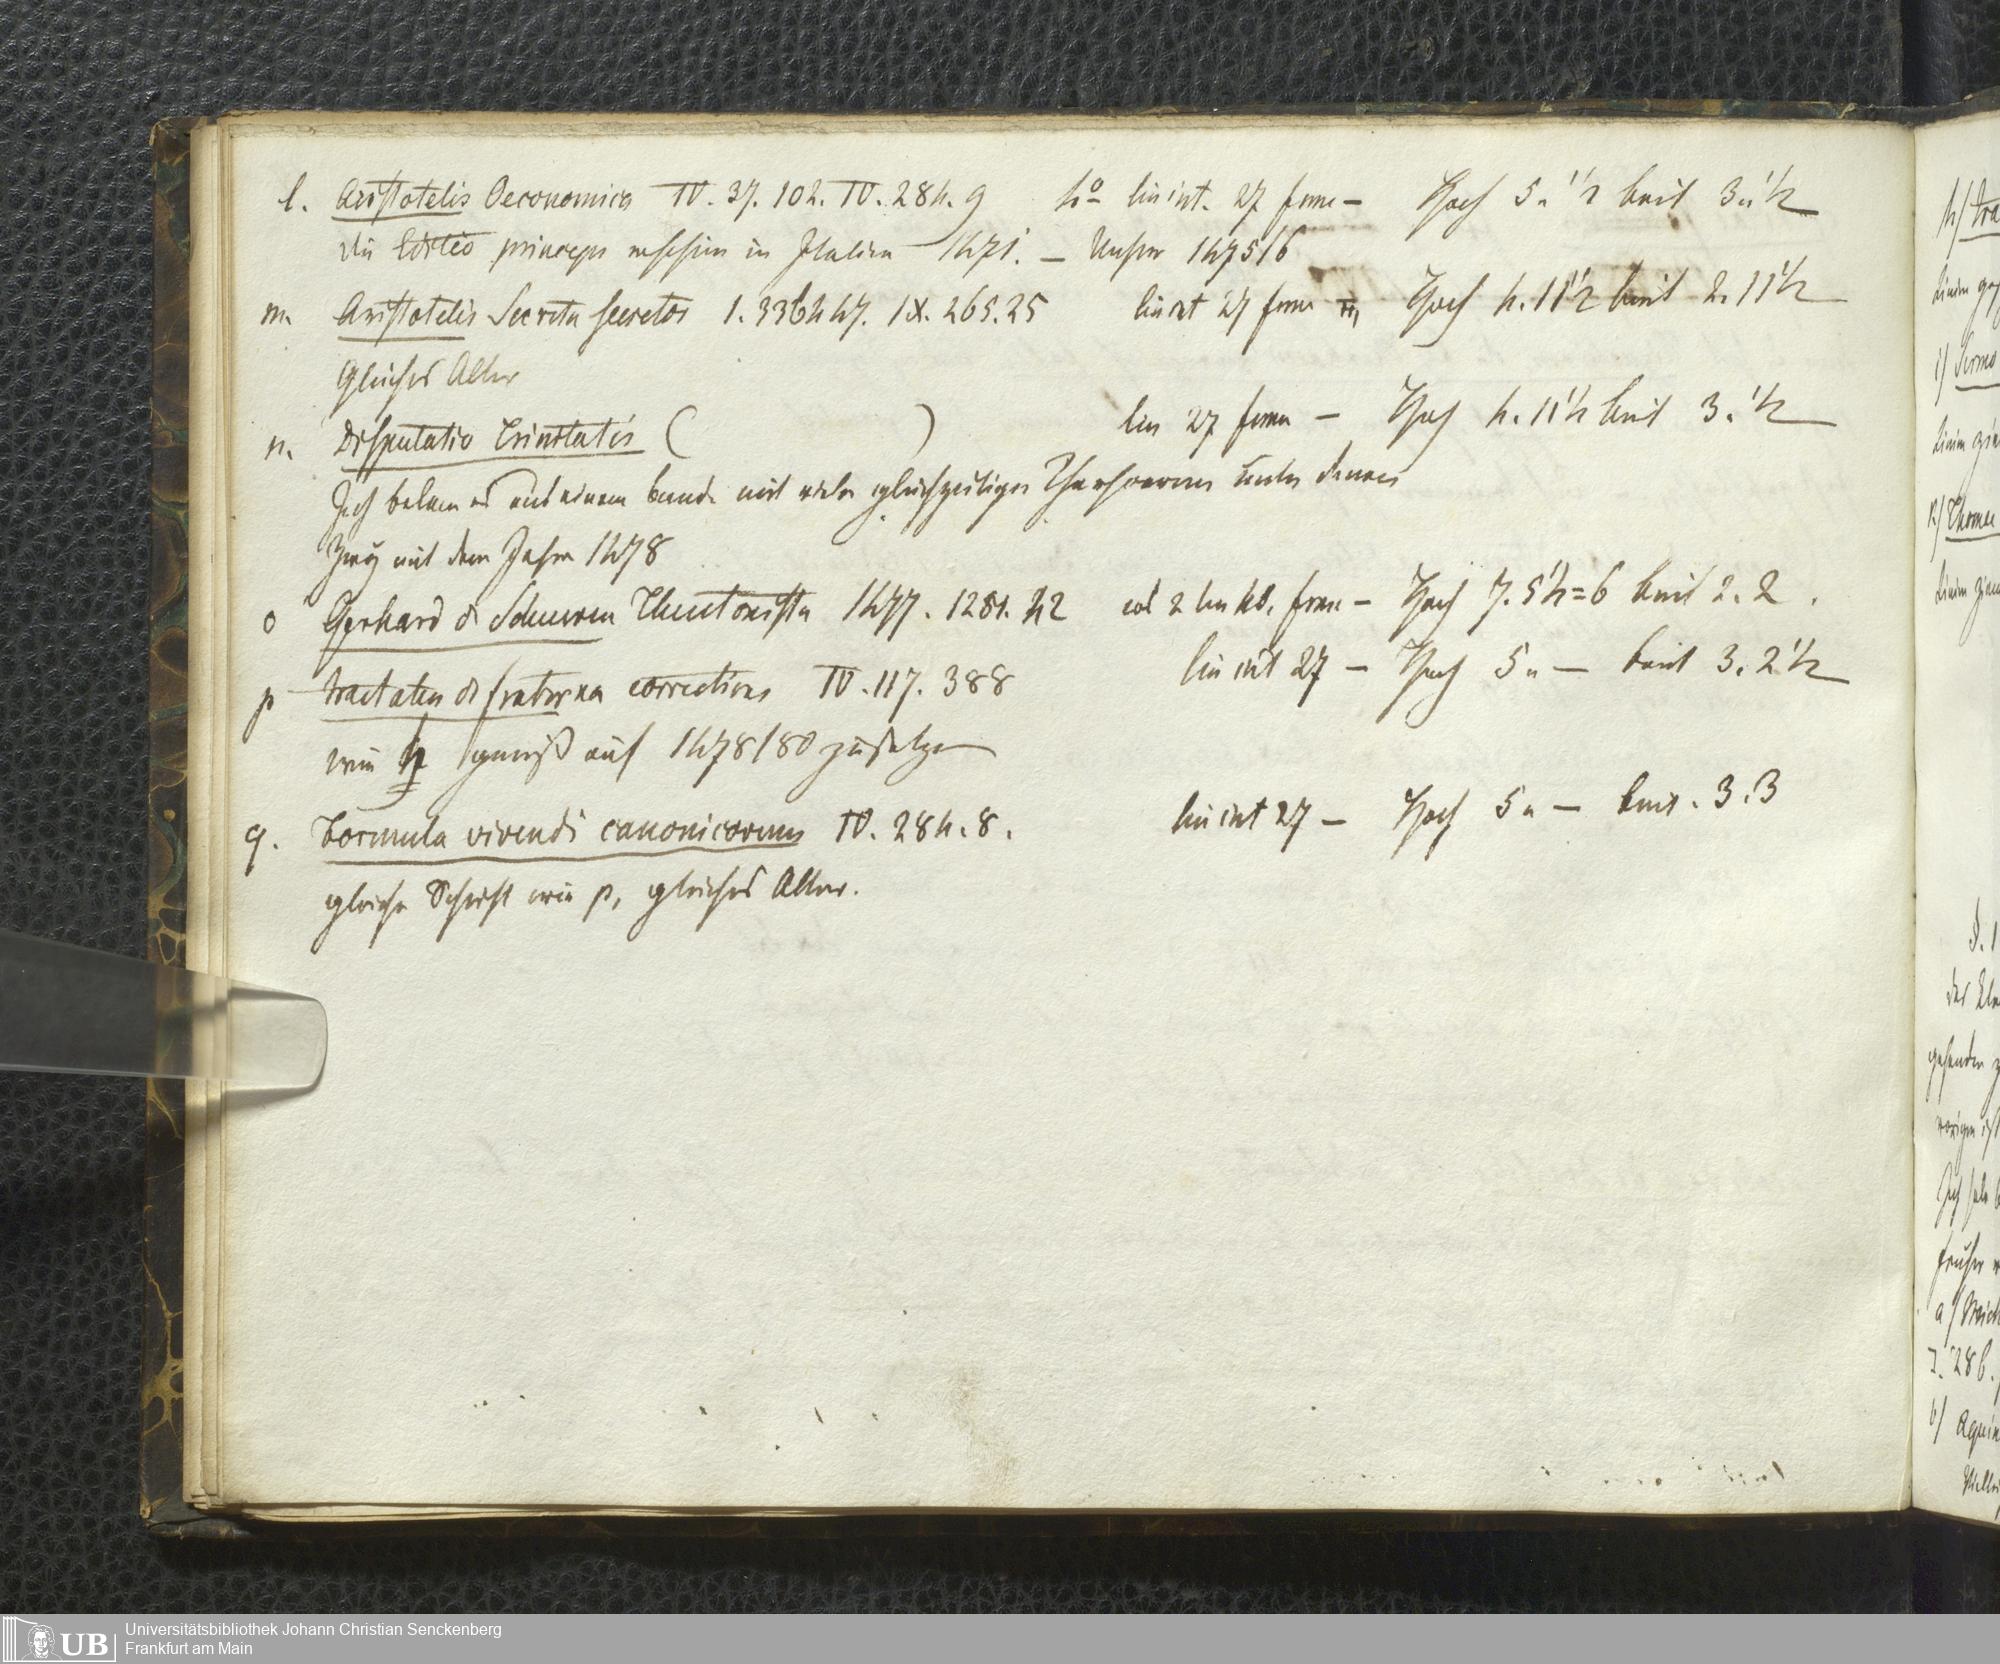 l. Aristotelis Oeconomica IV. 37. 102. IV. 284. 9 4° lin int. 27 forme — Hoch 5 „ 1/2 breit 3 „ 1/2
die Editio princeps erschien in Italien 1471. — Unsere 1475/6
m. Aristotelis Secreta secretor 1. 336 447. IX. 265. 25 lin int 27 forme Hoch 4. 11 1/2 breit 2. 11 1/2
Gleiches Alter
n. Disputatio Trinitatis ( ) lin 27 forme — Hoch 4. 11 1/2 breit 3. 1/2
Ich bekam es aus einem bande mit vielen gleichzeitigen unter denen
zwey mit dem Jahre 1478
o Gerhard d Schueren Theutonista 1477. 1281. 42 col 2 lin 40. forme — Hoch 7. 5 1/2 = 6 breit 2. 2.
p tractatus d fraterna correctione IV. 117. 388 lin int 27 — Hoch 5 „ — breit 3. 2 1/2
wie gewiß auf 1478/80 zu setzen
q. Formula vivendi canonicorum IV. 284. 8. lin int 27 — Hoch 5 „ — breit. 3. 3
gleiche Schrift wie p, gleiches Alter.
h)
i) Sermo
k) Thomae
früher
a)
b)
UB Universitätsbibliothek Johann Christian Senckenberg
Frankfurt am Main